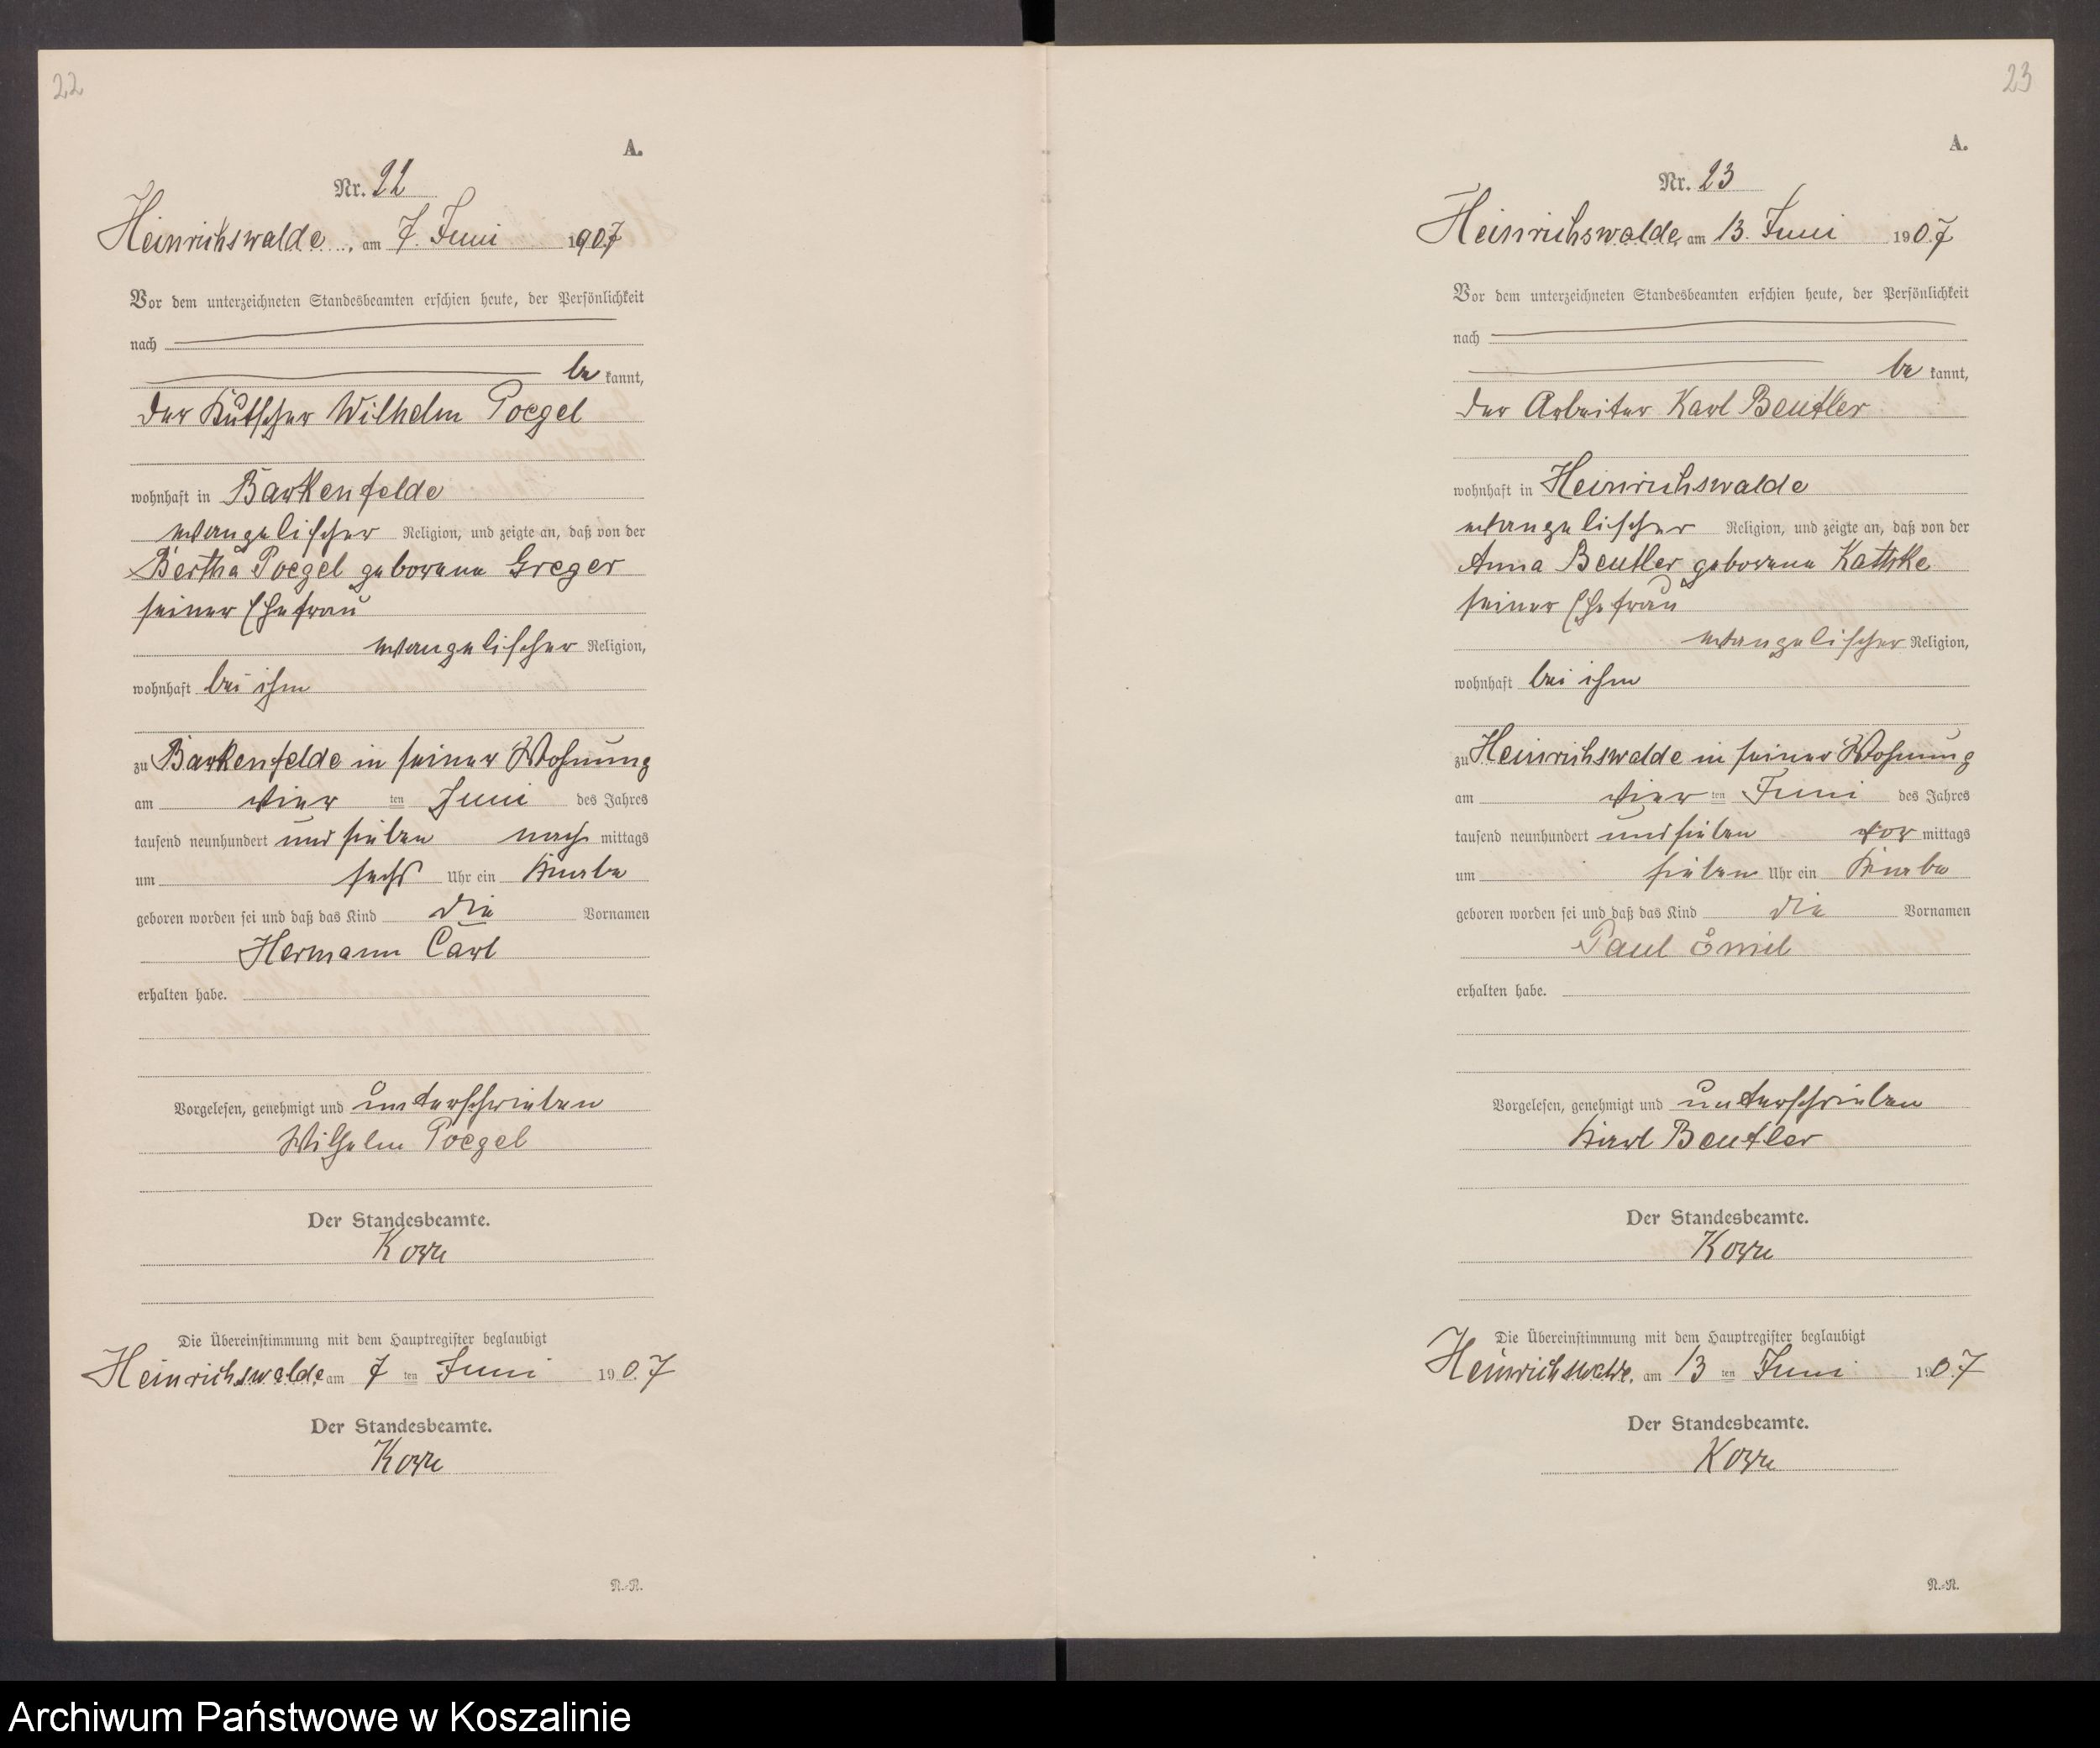 22
A.
Nr. 22
Heinrichswalde, am 7. Juni 1907
Vor dem unterzeichneten Standesbeamten erschien heute, der Persönlichkeit
nach
be kannt,
der Kutscher Wilhelm Poegel
wohnhaft in Barkenfelde
evangelischer Religion, und zeigte an, daß von der
Bertha Poegel geborene Greger
seiner Ehefrau
evangelischer Religion,
wohnhaft bei ihm
zu Barkenfelde in seiner Wohnung
am vier ten Juni des Jahres
tausend neunhundert und sieben nach mittags
um sechs Uhr ein Knabe
geboren worden sei und daß das Kind die Vornamen
Hermann Carl
erhalten habe.
Vorgelesen, genehmigt und unterschrieben
Wilhelm Poegel
Der Standesbeamte.
Die Übereinstimmung mit dem Hauptregister beglaubigt
Heinrichswalde am 7 ten Juni 1907
Der Standesbeamte.
N.-N.
23
A.
Nr. 23
Heinrichswalde, am 13. Juni 1907
Vor dem unterzeichneten Standesbeamten erschien heute, der Persönlichkeit
nach
be kannt,
der Arbeiter Karl Beutler
wohnhaft in Heinrichswalde
evangelischer Religion, und zeigte an, daß von der
Anna Beutler geborene Kathke
seiner Ehefrau
evangelischer Religion,
wohnhaft bei ihm
zu Heinrichswalde in seiner Wohnung
am vier ten Juni des Jahres
tausend neunhundert und sieben vor mittags
um sieben Uhr ein Knabe
geboren worden sei und daß das Kind die Vornamen
Paul Emil
erhalten habe.
Vorgelesen, genehmigt und unterschrieben
Karl Beutler
Der Standesbeamte.
Die Übereinstimmung mit dem Hauptregister beglaubigt
Heinrichswalde, am 13 ten Juni 1907
Der Standesbeamte.
N.-N.
Archiwum Państwowe w Koszalinie